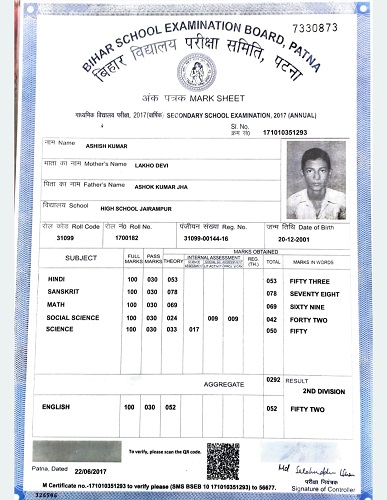 7330873
BIHAR SCHOOL EXAMINATION BOARD, PATNA
बिहार विद्यालय परीक्षा समिति, पटना
अंक पत्रक MARK SHEET
माध्यमिक विद्यालय परीक्षा, 2017 (वार्षिक) SECONDARY SCHOOL EXAMINATION, 2017 (ANNUAL)
4 Sl. No. 171010351293
नाम Name
ASHISH KUMAR
माता का नाम Mother's Name LAKHO DEVI
पिता का नाम Father's Name ASHOK KUMAR JHA
विद्यालय School HIGH SCHOOL JAIRAMPUR
रोल कोड Roll Code रोल नं० Roll No. पंजीयन संख्या Reg. No. जन्म तिथि Date of Birth
31099 1700182 31099-00144-16 20-12-2001
MARKS OBTAINED
SUBJECT FULL MARKS PASS MARKS THEORY INTERNAL ASSESSMENT REG. (TH.) TOTAL MARKS IN WORDS
HINDI 100 030 053 053 FIFTY THREE
SANSKRIT 100 030 078 078 SEVENTY EIGHT
MATH 100 030 069 069 SIXTY NINE
SOCIAL SCIENCE 100 030 024 009 009 042 FORTY TWO
SCIENCE 100 030 033 017 050 FIFTY
AGGREGATE 0292 RESULT
2ND DIVISION
ENGLISH 100 030 052 052 FIFTY TWO
To verify, please scan the QR code.
Patna, Dated 22/06/2017
परीक्षा नियंत्रक
Signature of Controller
M Certificate no.-171010351293 to verify please (SMS BSEB 10 171010351293 to 56677.
326946